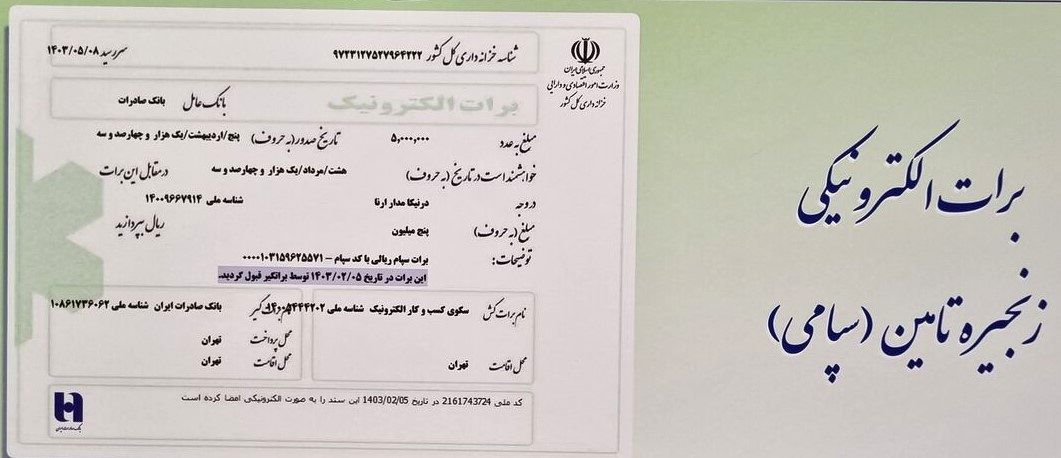 جمهوری اسلامی ایران
وزارت امور اقتصادی و دارایی
خزانه داری کل کشور
شناسه خزانه داری کل کشور ۹۷۲۳۱۲۷۵۲۷۹۶۴۲۲۲ سررسید ۱۴۰۳/۰۵/۰۸
برات الکترونیک بانک عامل بانک صادرات
مبلغ به عدد ۵,۰۰۰,۰۰۰ تاریخ صدور (به حروف) پنج/اردیبهشت/یک هزار و چهارصد و سه
خواهشمند است در تاریخ (به حروف) هشت/مرداد/یک هزار و چهارصد و سه در مقابل این برات
در وجه درنیکا مدار ارنا شناسه ملی ۱۴۰۰۹۶۶۷۹۱۴
مبلغ (به حروف) پنج میلیون ریال بپردازید
توضیحات: برات سپام ریالی با کد سپام – ۰۰۰۰۱۰۳۱۵۹۶۲۵۵۷۱
این برات در تاریخ ۱۴۰۳/۰۲/۰۵ توسط براتگیر قبول گردید.
نام برات کش سکوی کسب و کار الکترونیک شناسه ملی
محل اقامت تهران
بانک صادرات ایران شناسه ملی ۱۰۸۶۱۷۳۶۰۶۲
محل پرداخت تهران
محل اقامت تهران
کد ملی 2161743724 در تاریخ 1403/02/05 این سند را به صورت الکترونیکی امضا کرده است
بانک صادرات ایران
برات الکترونیکی
زنجیره تامین (سپامی)